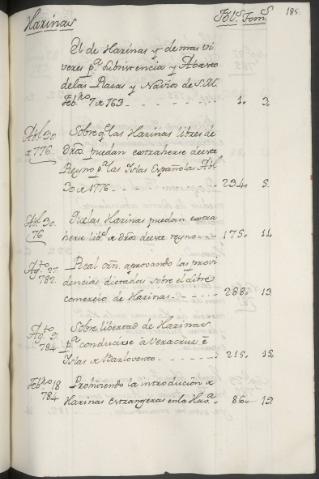 Harinas Fol.s Tom.s 185.
Rl de Harinas y demas vi
veres p.a subsistencia y Abasto
delas Plazas y Navios de S.M.
Feb.ro 7 de 763. 1. 2
Abl. 30 Sobre q.e las Harinas libres de
d 776. Dro. puedan extraherse de este
Reyno p.a las Islas Españolas Abl
30 de 1776. 234. 5
Abl. 30. Q.e las Harinas puedan extra
76. herse lib.s d dros de este reyno. 175. 11
Ag.to 22 Real orn. aprovando las provi
782. dencias dictadas sobre el libre
comercio de Harinas. 288. 13
Ag.to 9. Sobre libertad de Harinas
784. p.a conducirse a Veracruz é
Islas d Barlovento. 215. 18
Feb.ro 18 Prohiviendo la introducion d
784 Harinas extrangeras en la Hav.a 86. 19